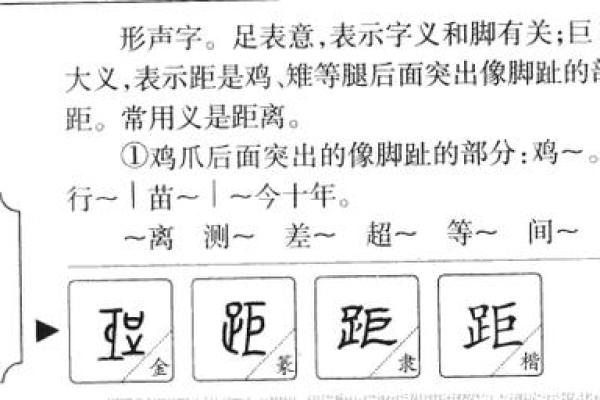 形声字。足表意,表示字义和脚有关;巨
大义,表示距是鸡、雉等腿后面突出像脚趾的部
距。常用义是距离。
①鸡爪后面突出的像脚趾的部分:鸡~。
行~｜苗~｜~今十年。
~离 测~ 差~ 超~ 等~ 间~
距 篆 距 隶 距 楷
金